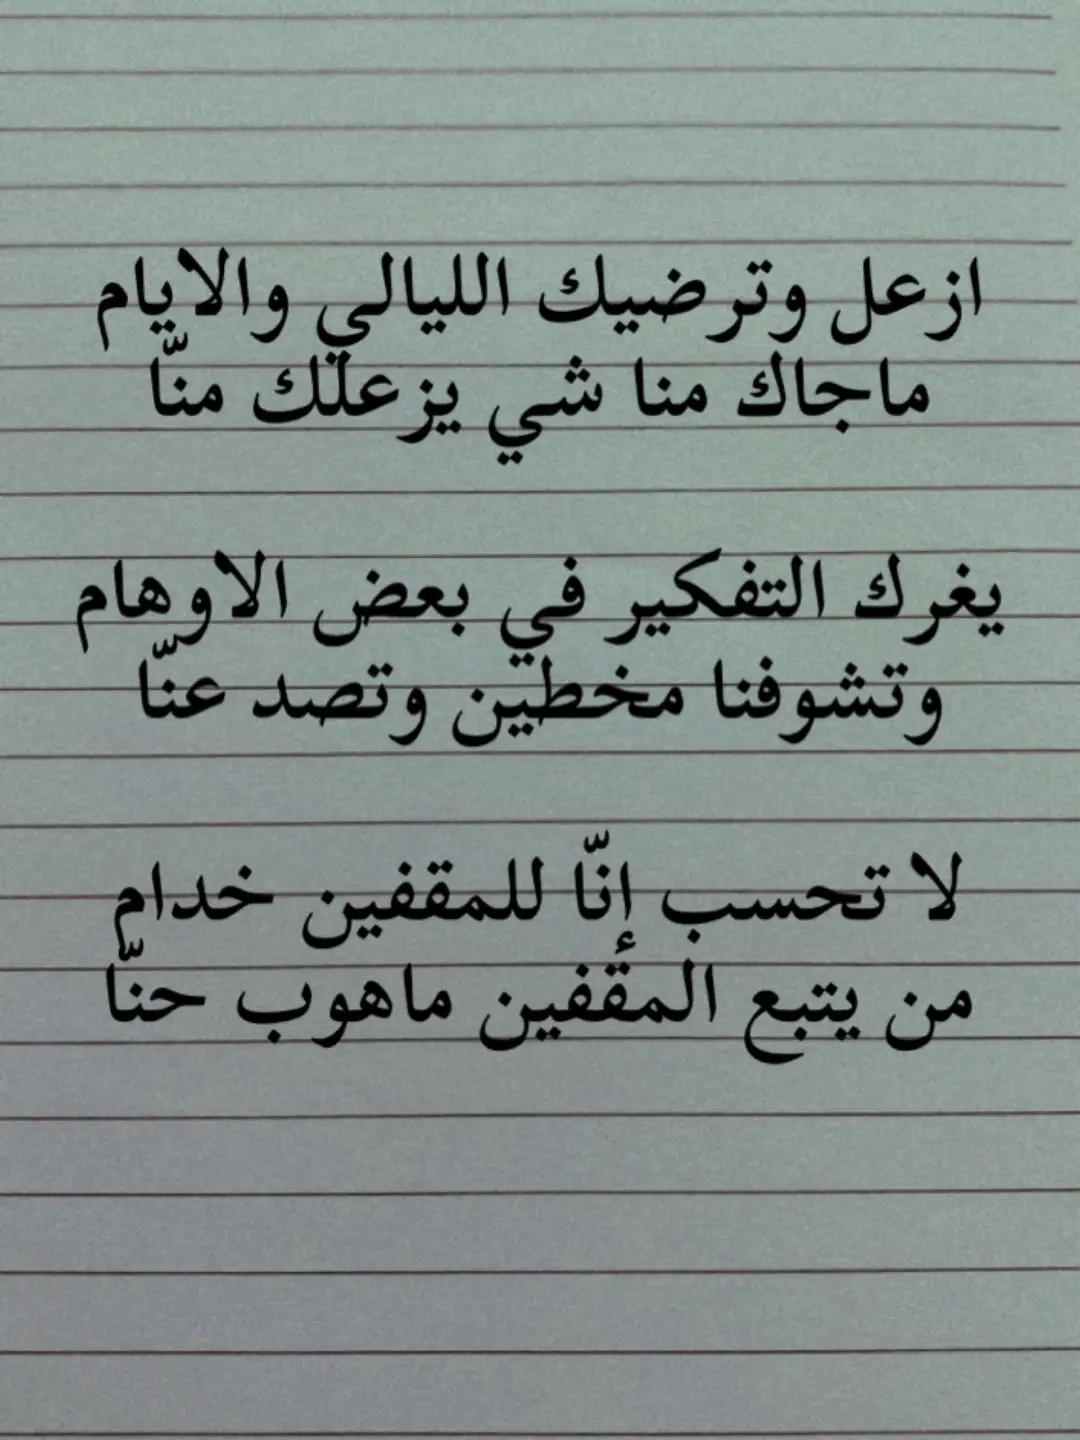 ازعل وترضيك الليالي والايام
ماجاك منا شي يزعلك منّا
يغرك التفكير في بعض الاوهام
وتشوفنا مخطين وتصد عنّا
لا تحسب إنّا للمقفين خدام
من يتبع المقفين ماهوب حنّا